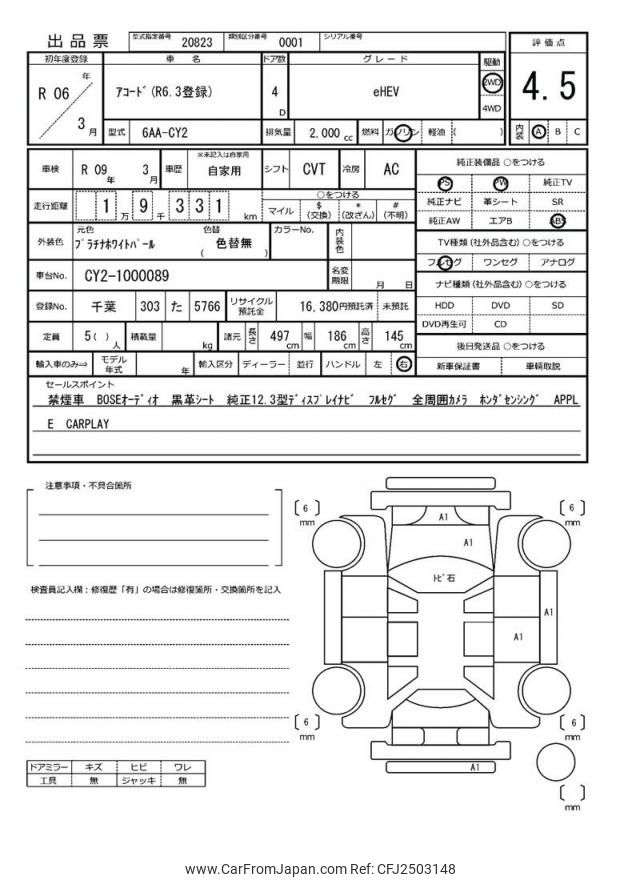 出品票 型式指定番号 20823 類別区分番号 0001 シリアル番号
評価点
4.5
初年度登録 車 名 ドア数 グレード 駆動
R 06 年 3 月 アコード(R6.3登録) 4 D eHEV 2WD 4WD
型式 6AA-CY2 排気量 2,000 cc 燃料 ガソリン 軽油 ( ) 内装 A B C
車検 R 09 年 3 月 車歴 ※未記入は自家用 自家用 シフト CVT 冷房 AC
純正装備品 ○をつける
PS PW 純正TV
純正ナビ 革シート SR
純正AW エアB ABS
走行距離 1 万 9 千 3 3 1 km ○をつける
マイル $ (交換) * (改ざん) # (不明)
TV種類 (社外品含む) ○をつける
フルセグ ワンセグ アナログ
外装色 元色 プラチナホワイトパール 色替 ( 色替無 ) カラーNo. 内装色
車台No. CY2-1000089 名変期限 月 日
ナビ種類 (社外品含む) ○をつける
HDD DVD SD
DVD再生可 CD
登録No. 千葉 303 た 5766 リサイクル預託金 16,380円預託済 未預託
定員 5( ) 人 積載量 kg 諸元 長さ 497 cm 幅 186 cm 高さ 145 cm
後日発送品 ○をつける
新車保証書 車輌取説
輸入車のみ⇒ モデル年式 年 輸入区分 ディーラー 並行 ハンドル 左 右
セールスポイント
禁煙車 BOSEオーディオ 黒革シート 純正12.3型ディスプレイナビ フルセグ 全周囲カメラ ホンダセンシング APPL
E CARPLAY
注意事項・不具合箇所
検査員記入欄：修復歴「有」の場合は修復箇所・交換箇所を記入
ドアミラー キズ ヒビ ワレ
工具 無 ジャッキ 無
[ 6 ] mm
A1
[ 6 ] mm
A1
トビ石
A1
A1
[ 6 ] mm
[ 6 ] mm
A1
[ ] mm
www.CarFromJapan.com Ref: CFJ2503148